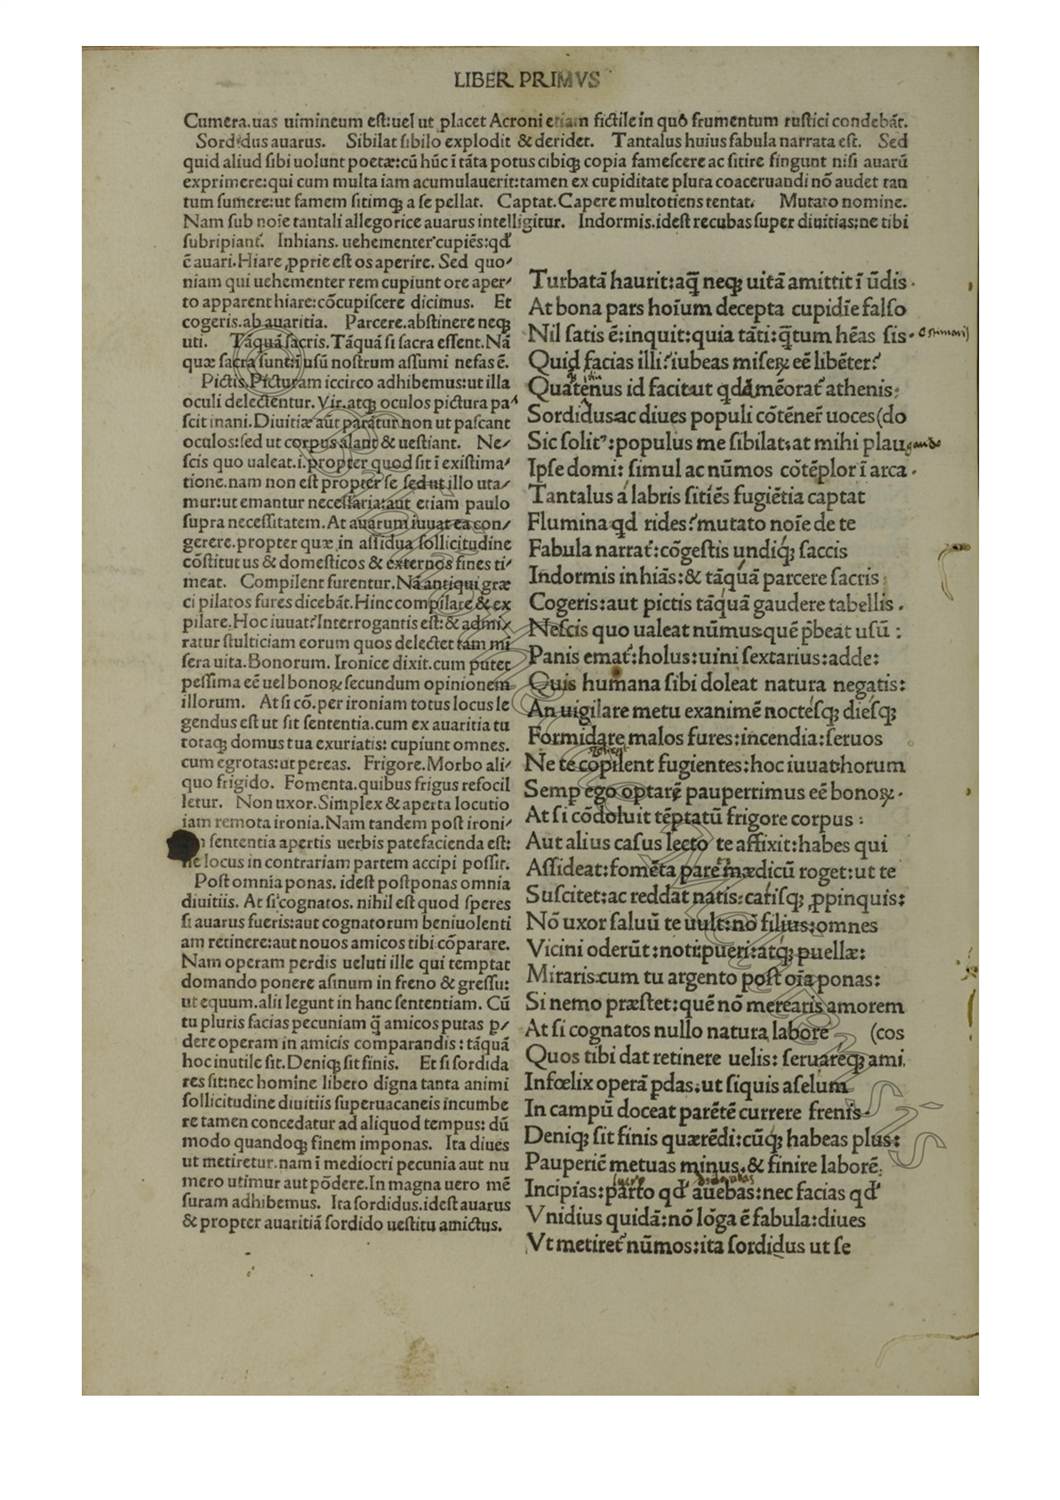 LIBER PRIMVS
Cumera.uas uimineum est:uel ut placet Acroni etiam fictile in quo frumentum rustici condebāt.
Sordidus auarus. Sibilat sibilo explodit & deridet. Tantalus huius fabula narrata est. Sed
quid aliud sibi uolunt poetæ:cū hūc ī tāta potus cibiqꝫ copia famescere ac sitire fingunt nisi auarū
exprimere:qui cum multa iam acumulauerit:tamen ex cupiditate plura coaceruandi nō audet tan
tum sumere:ut famem sitimqꝫ a se pellat. Captat.Capere multotiens tentat. Mutato nomine.
Nam sub noīe tantali allegorice auarus intelligitur. Indormis.idest recubas super diuitias:ne tibi
subripiant̄. Inhians. uehementer cupiēs:qđ
ē auari.Hiare ꝓprie est os aperire. Sed quo/
niam qui uehementer rem cupiunt ore aper/
to apparent hiare:cōcupiscere dicimus. Et
cogeris.ab auaritia. Parcere.abstinere neqꝫ
uti. Tāquā sacris.Tāquā si sacra essent.Nā
quæ sacra sunt:ī usū nostrum assumi nefas ē.
Pictis.Picturam iccirco adhibemus:ut illa
oculi delectentur. Vir.atqꝫ oculos pictura pa/
scit inani.Diuitiæ aūt parātur non ut pascant
oculos:sed ut corpus alant & uestiant. Ne/
scis quo ualeat.i.propter quod sit ī existima/
tione.nam non est propter se sed ut illo uta/
mur:ut emantur necessaria:aut etiam paulo
supra necessitatem. At auarum iuuat ea con/
gerere.propter quæ in assidua sollicitudine
cōstitutus & domesticos & externos fines ti/
meat. Compilent furentur. Nā antiqui græ
ci pilatos fures dicebāt.Hinc compilare & ex
pilare.Hoc iuuat?Interrogantis est:& admi/
ratur stulticiam eorum quos delectet tam mi
sera uita.Bonorum. Ironice dixit.cum putet
pessima eē uel bonoꝝ secundum opinionem
illorum. At si cō.per ironiam totus locus le
gendus est ut sit sententia.cum ex auaritia tu
totaqꝫ domus tua exuriatis: cupiunt omnes.
cum egrotas:ut pereas. Frigore.Morbo ali/
quo frigido. Fomenta.quibus frigus refocil
letur. Non uxor.Simplex & aperta locutio
iam remota ironia.Nam tandem post ironi/
sententia apertis uerbis patefacienda est:
ne locus in contrariam partem accipi possit.
Post omnia ponas. idest postponas omnia
diuitiis. At si cognatos. nihil est quod speres
si auarus fueris:aut cognatorum beniuolenti
am retinere:aut nouos amicos tibi cōparare.
Nam operam perdis ueluti ille qui temptat
domando ponere asinum in freno & gressu:
ut equum.alii legunt in hanc sententiam. Cū
tu pluris facias pecuniam q̄ amicos putas p/
dere operam in amicis comparandis : tāquā
hoc inutile sit.Deniqꝫ sit finis. Et si sordida
res sit:nec homine libero digna tanta animi
sollicitudine diuitiis superuacaneis incumbe
re tamen concedatur ad aliquod tempus: dū
modo quandoqꝫ finem imponas. Ita diues
ut metiretur.nam ī mediocri pecunia aut nu
mero utimur aut pōdere.In magna uero mē
suram adhibemus. Ita sordidus.idest auarus
& propter auaritiā sordido uestitu amictus.
Turbatā haurit:aq̄ neqꝫ uitā amittit ī ūdis.
At bona pars hoīum decepta cupidīe falso
Nil satis ē:inquit:quia tāti:q̄tum hēas sis.
Quid facias illi?iubeas miseꝝ eē libēter?
Quatenus id facit:ut qdā mēorat̄ athenis:
Sordidus:ac diues populi cōtēner̄ uoces(do
Sic solitꝰ:populus me sibilat:at mihi plau
Ipse domi: simul ac nūmos cōtēplor ī arca.
Tantalus á labris sitiēs fugiētia captat
Flumina qđ rides?mutato noīe de te
Fabula narrat̄:cōgestis undiqꝫ saccis
Indormis inhiās:& tāquā parcere sacris
Cogeris:aut pictis tāquā gaudere tabellis.
Nescis quo ualeat nūmus:quē p̄beat usū:
Panis emat̄:holus:uini sextarius:adde:
Quis humana sibi doleat natura negatis:
An uigilare metu exanimē noctesqꝫ diesqꝫ
Formidare malos fures:incendia:seruos
Ne te cōpilent fugientes:hoc iuuat:horum
Semp ego optarē pauperrimus eē bonoꝝ.
At si cōdoluit tēptatū frigore corpus:
Aut alius casus lecto te affixit:habes qui
Assideat:fomēta paret:mædicū roget:ut te
Suscitet:ac reddat natis:carisqꝫ ꝓpinquis:
Nō uxor saluū te uult:nō filius:omnes
Vicini oderūt:noti:pueri:atqꝫ puellæ:
Miraris:cum tu argento post oīa ponas:
Si nemo præstet:quē nō merearis amorem
At si cognatos nullo natura labore (cos
Quos tibi dat retinere uelis: seruareqꝫ ami
Infœlix operā pdas:ut siquis aselum
In campū doceat parētē currere frenis.
Deniqꝫ sit finis quærēdi:cūqꝫ habeas plus:
Pauperiē metuas minus:& finire laborē
Incipias:parto qđ auebas:nec facias qđ
Vnidius quidā:nō lōga ē fabula:diues
Vt metiret̄ nūmos:ita sordidus ut se